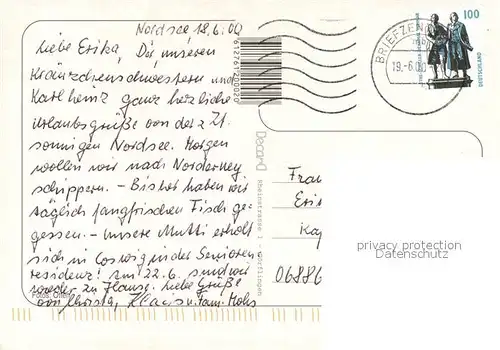 Nordsee 18.6.00
Liebe Erika, Dir, unseren
Kränzchenschwestern und
Karlheinz ganz herzliche
Urlaubsgrüße von der z. Zt.
sonnigen Nordsee. Morgen
wollen wir nach Norderney
schippern. – Bisher haben wir
täglich fangfrischen Fisch ge-
gessen. – Unsere Mutti erholt
sich in Coswig in der Senioren
residenz! Am 22.6. sind wir
wieder zu Hause. Liebe Grüße
von Christa, Klaus u. Fam. Mohs
Fotos:
BRIEFZEN
19.-6.00
100
DEUTSCHLAND
Rheinstrasse 1
Frau
Eri
Ka
06886
privacy protection
Datenschutz